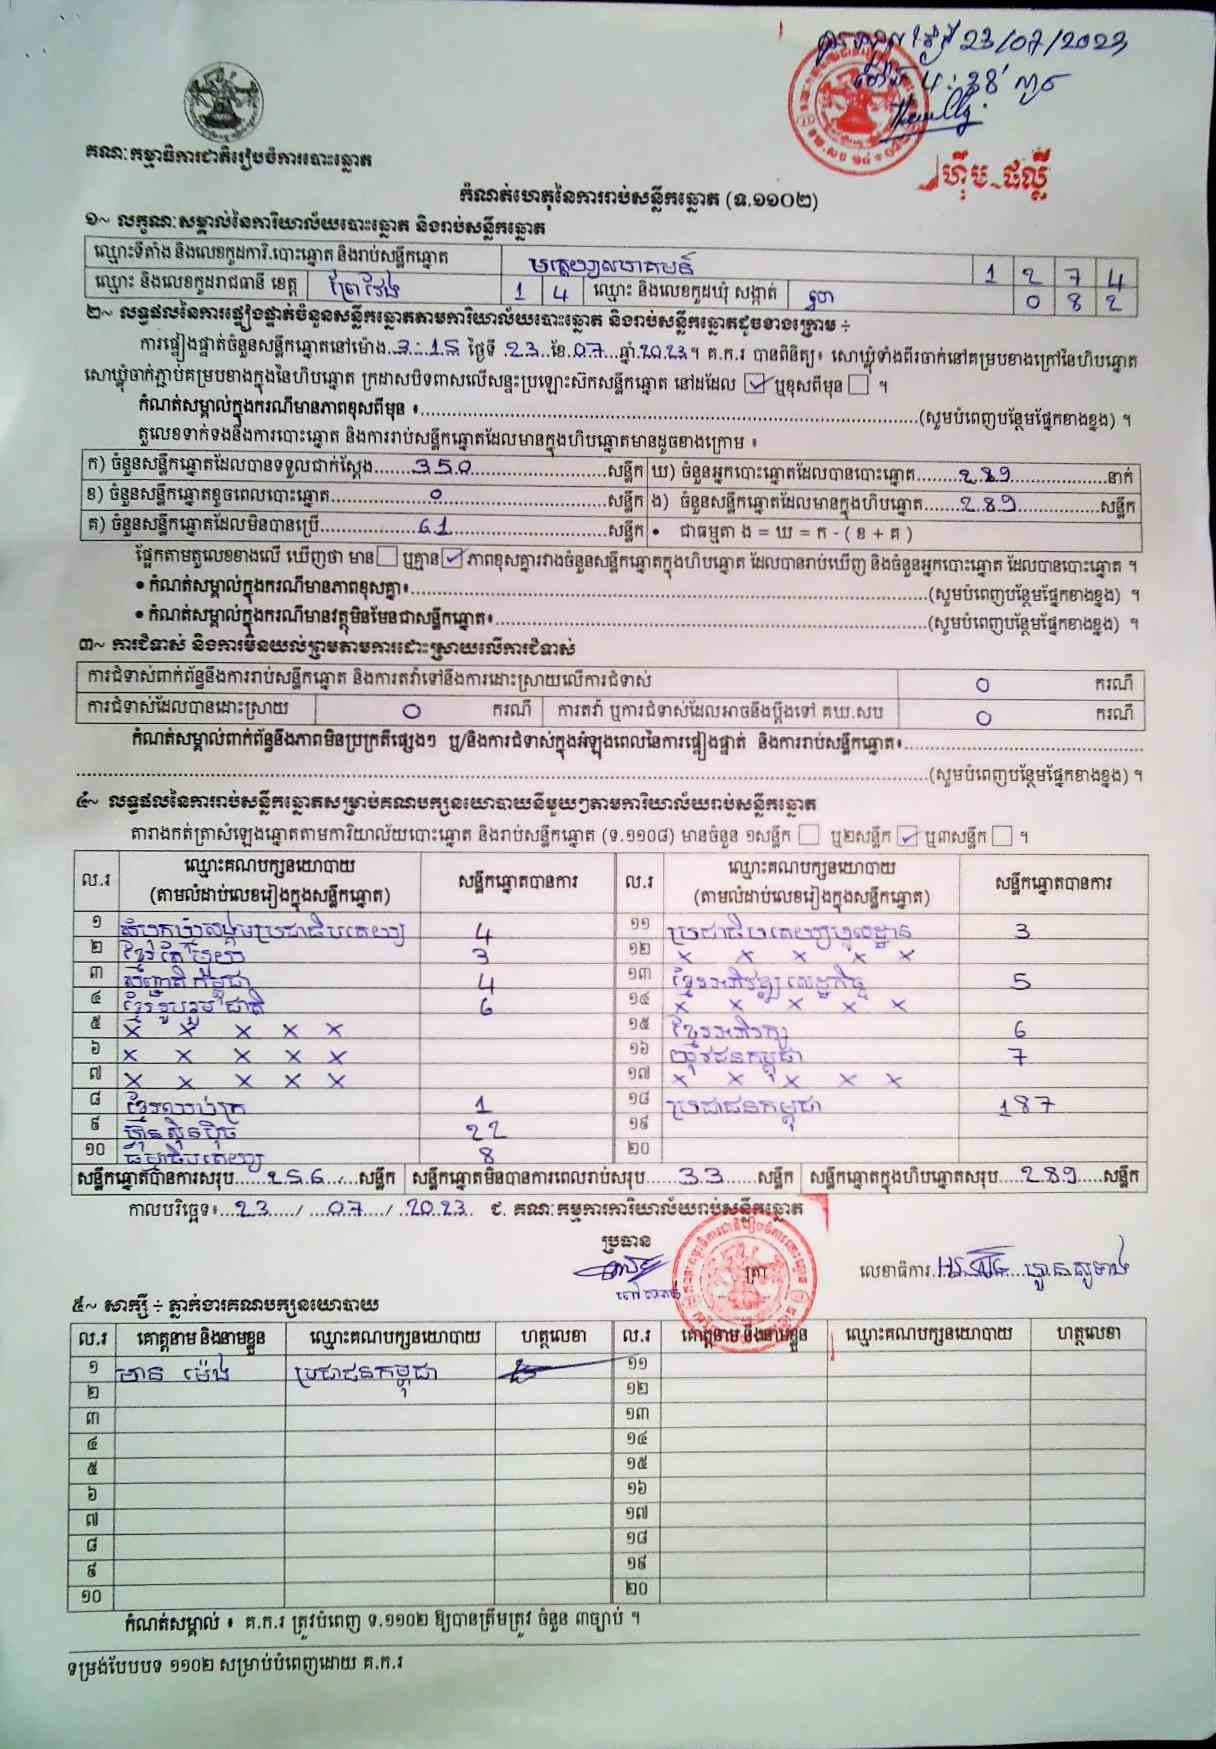 បានទទួល ថ្ងៃទី 23/07/2023
គណៈកម្មាធិការជាតិរៀបចំការបោះឆ្នោត
ហ៊ឹម ផល្លី
កំណត់ហេតុនៃការរាប់សន្លឹកឆ្នោត (ទ.១១០២)
១~ លក្ខណៈសម្គាល់នៃការិយាល័យបោះឆ្នោត និងរាប់សន្លឹកឆ្នោត
ឈ្មោះទីតាំង និងលេខកូដការិ.បោះឆ្នោត និងរាប់សន្លឹកឆ្នោត 1 2 7 4
ឈ្មោះ និងលេខកូដរាជធានី ខេត្ត ព្រៃវែង 1 4 ឈ្មោះ និងលេខកូដឃុំ សង្កាត់ 0 8 2
២~ លទ្ធផលនៃការផ្ទៀងផ្ទាត់ចំនួនសន្លឹកឆ្នោតតាមការិយាល័យបោះឆ្នោត និងរាប់សន្លឹកឆ្នោតដូចខាងក្រោម ÷
ការផ្ទៀងផ្ទាត់ចំនួនសន្លឹកឆ្នោតនៅម៉ោង 3:15 ថ្ងៃទី 23 ខែ 07 ឆ្នាំ 2023។ គ.ក.រ បានពិនិត្យ៖ សោឃ្លុំទាំងពីរចាក់នៅគម្របខាងក្រៅនៃហិបឆ្នោត
សោឃ្លុំចាក់ភ្ជាប់គម្របខាងក្នុងនៃហិបឆ្នោត ក្រដាសបិទពាសលើសន្ទះប្រឡោះស៊កសន្លឹកឆ្នោត នៅដដែល ☑ ឬខុសពីមុន ☐ ។
កំណត់សម្គាល់ក្នុងករណីមានភាពខុសពីមុន ៖ (សូមបំពេញបន្ថែមផ្នែកខាងខ្នង) ។
តួលេខទាក់ទងនឹងការបោះឆ្នោត និងការរាប់សន្លឹកឆ្នោតដែលមានក្នុងហិបឆ្នោតមានដូចខាងក្រោម ៖
ក) ចំនួនសន្លឹកឆ្នោតដែលបានទទួលជាក់ស្តែង 350 សន្លឹក ឃ) ចំនួនអ្នកបោះឆ្នោតដែលបានបោះឆ្នោត 289 នាក់
ខ) ចំនួនសន្លឹកឆ្នោតខូចពេលបោះឆ្នោត 0 សន្លឹក ង) ចំនួនសន្លឹកឆ្នោតដែលមានក្នុងហិបឆ្នោត 289 សន្លឹក
គ) ចំនួនសន្លឹកឆ្នោតដែលមិនបានប្រើ 61 សន្លឹក • ជាធម្មតា ង = ឃ = ក - ( ខ + គ )
ផ្អែកតាមតួលេខខាងលើ ឃើញថា មាន ☐ ឬគ្មាន ☑ ភាពខុសគ្នារវាងចំនួនសន្លឹកឆ្នោតក្នុងហិបឆ្នោត ដែលបានរាប់ឃើញ និងចំនួនអ្នកបោះឆ្នោត ដែលបានបោះឆ្នោត ។
• កំណត់សម្គាល់ក្នុងករណីមានភាពខុសគ្នា៖ (សូមបំពេញបន្ថែមផ្នែកខាងខ្នង) ។
• កំណត់សម្គាល់ក្នុងករណីមានវត្ថុមិនមែនជាសន្លឹកឆ្នោត៖ (សូមបំពេញបន្ថែមផ្នែកខាងខ្នង) ។
៣~ ការជំទាស់ និងការមិនយល់ព្រមតាមការដោះស្រាយលើការជំទាស់
ការជំទាស់ពាក់ព័ន្ធនឹងការរាប់សន្លឹកឆ្នោត និងការតវ៉ាទៅនឹងការដោះស្រាយលើការជំទាស់ 0 ករណី
ការជំទាស់ដែលបានដោះស្រាយ 0 ករណី ការតវ៉ា ឬការជំទាស់ដែលអាចនឹងប្តឹងទៅ គឃ.សប 0 ករណី
កំណត់សម្គាល់ពាក់ព័ន្ធនឹងភាពមិនប្រក្រតីផ្សេងៗ ឬ/និងការជំទាស់ក្នុងអំឡុងពេលនៃការផ្ទៀងផ្ទាត់ និងការរាប់សន្លឹកឆ្នោត៖
(សូមបំពេញបន្ថែមផ្នែកខាងខ្នង) ។
៤~ លទ្ធផលនៃការរាប់សន្លឹកឆ្នោតសម្រាប់គណបក្សនយោបាយនីមួយៗតាមការិយាល័យរាប់សន្លឹកឆ្នោត
តារាងកត់ត្រាសំឡេងឆ្នោតតាមការិយាល័យបោះឆ្នោត និងរាប់សន្លឹកឆ្នោត (ទ.១១០៨) មានចំនួន ១សន្លឹក ☐ ឬ២សន្លឹក ☑ ឬ៣សន្លឹក ☐ ។
ល.រ ឈ្មោះគណបក្សនយោបាយ (តាមលំដាប់លេខរៀងក្នុងសន្លឹកឆ្នោត) សន្លឹកឆ្នោតបានការ ល.រ ឈ្មោះគណបក្សនយោបាយ (តាមលំដាប់លេខរៀងក្នុងសន្លឹកឆ្នោត) សន្លឹកឆ្នោតបានការ
១ សំបុកឃ្មុំសង្គមប្រជាធិបតេយ្យ 4 ១១ ប្រជាធិបតេយ្យមូលដ្ឋាន 3
២ ខ្មែរតែមួយ 3 ១២ × × × × ×
៣ សញ្ជាតិកម្ពុជា 4 ១៣ ខ្មែរអភិវឌ្ឍសេដ្ឋកិច្ច 5
៤ ខ្មែររួបរួមជាតិ 6 ១៤ × × × × ×
៥ × × × × × ១៥ ខ្មែរអភិរក្ស 6
៦ × × × × × ១៦ យុវជនកម្ពុជា 7
៧ × × × × × ១៧ × × × × ×
៨ ខ្មែរឈប់ក្រ 1 ១៨ ប្រជាជនកម្ពុជា 187
៩ ហ៊្វុនស៊ិនប៉ិច 22 ១៩
១០ ធម្មាធិបតេយ្យ 8 ២០
សន្លឹកឆ្នោតបានការសរុប 256 សន្លឹក សន្លឹកឆ្នោតមិនបានការពេលរាប់សរុប 33 សន្លឹក សន្លឹកឆ្នោតក្នុងហិបឆ្នោតសរុប 289 សន្លឹក
កាលបរិច្ឆេទ៖ 23 / 07 / 2023 ជ. គណៈកម្មការការិយាល័យរាប់សន្លឹកឆ្នោត
ប្រធាន
ត្រា
លេខាធិការ
៥~ សាក្សី ÷ ភ្នាក់ងារគណបក្សនយោបាយ
ល.រ គោត្តនាម និងនាមខ្លួន ឈ្មោះគណបក្សនយោបាយ ហត្ថលេខា ល.រ គោត្តនាម និងនាមខ្លួន ឈ្មោះគណបក្សនយោបាយ ហត្ថលេខា
១ មាន ម៉េង ប្រជាជនកម្ពុជា ១១
២ ១២
៣ ១៣
៤ ១៤
៥ ១៥
៦ ១៦
៧ ១៧
៨ ១៨
៩ ១៩
១០ ២០
កំណត់សម្គាល់ ៖ គ.ក.រ ត្រូវបំពេញ ទ.១១០២ ឱ្យបានត្រឹមត្រូវ ចំនួន ៣ច្បាប់ ។
ទម្រង់បែបបទ ១១០២ សម្រាប់បំពេញដោយ គ.ក.រ